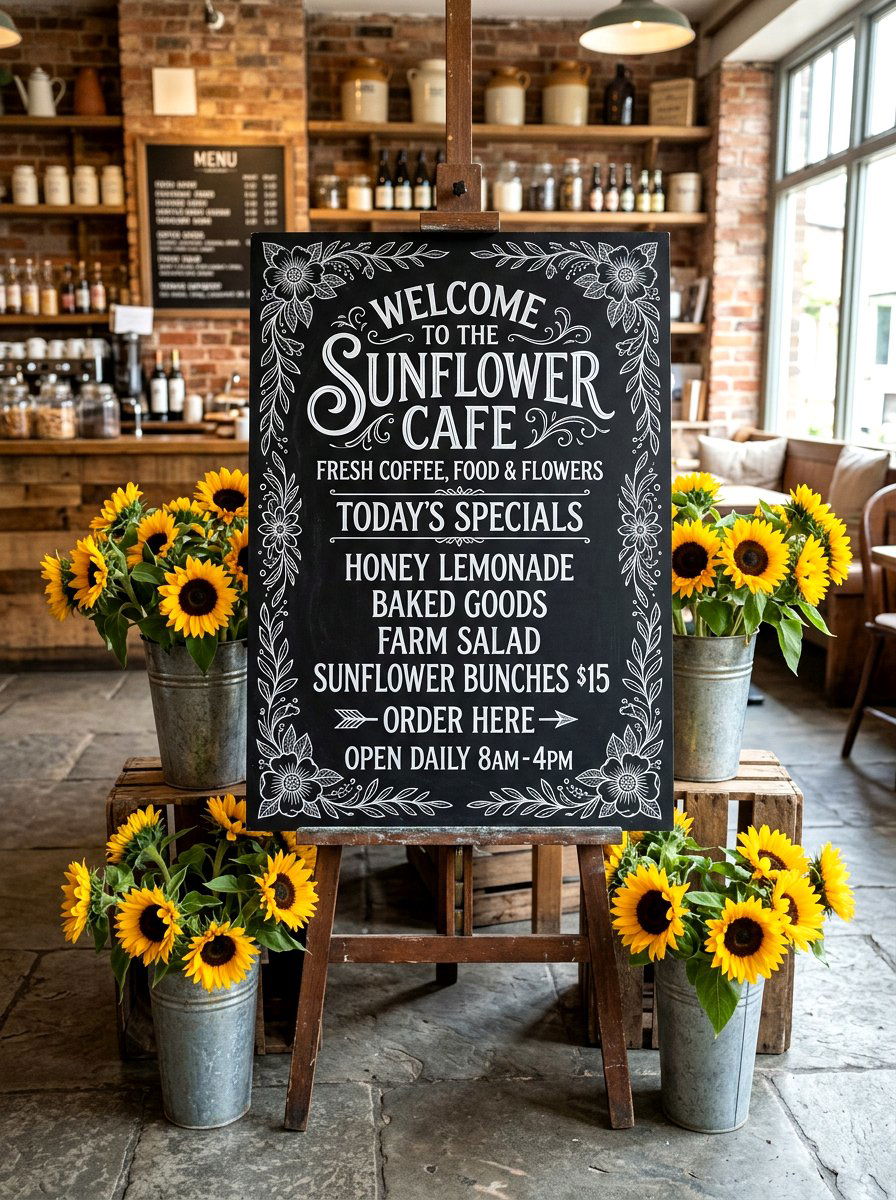 MENU
WELCOME
TO THE
SUNFLOWER
CAFE
FRESH COFFEE, FOOD & FLOWERS
TODAY'S SPECIALS
HONEY LEMONADE
BAKED GOODS
FARM SALAD
SUNFLOWER BUNCHES $15
ORDER HERE
OPEN DAILY 8AM-4PM